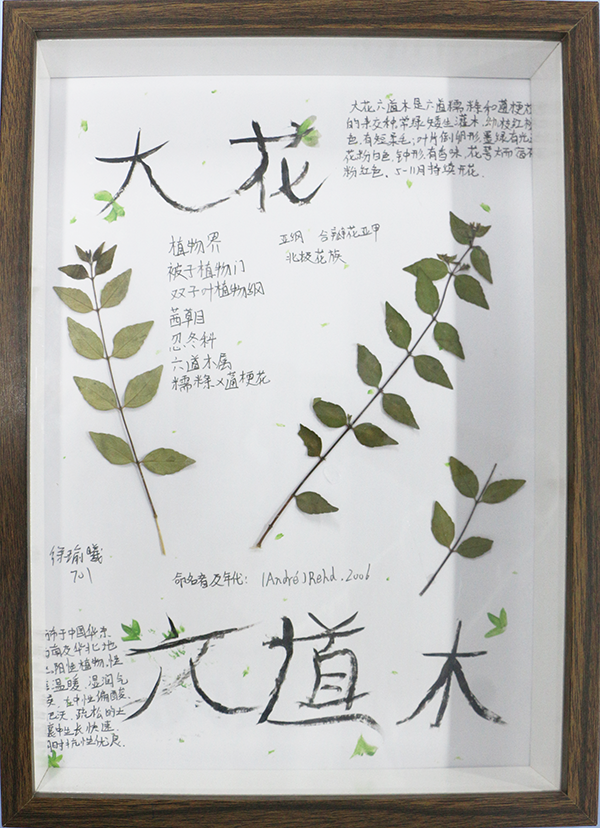 大花
大花六道木是六道糯米条和蓪梗花
的杂交种,常绿矮生灌木,幼枝红褐
色,有短柔毛;叶片倒卵形,墨绿有光泽
花粉白色,钟形,有香味,花萼大而宿存
粉红色。5-11月持续开花。
植物界
被子植物门
双子叶植物纲
茜草目
忍冬科
六道木属
糯米条×蓪梗花
亚纲 合瓣花亚甲
北极花族
徐瑜曦
701
命名者及年代:(André)Rehd.2006
六道木
布于中国华东
南及华北地
阳性植物,性
温暖、湿润气
在中性偏酸
肥沃、疏松的土
壤中生长快速
抗性优良.